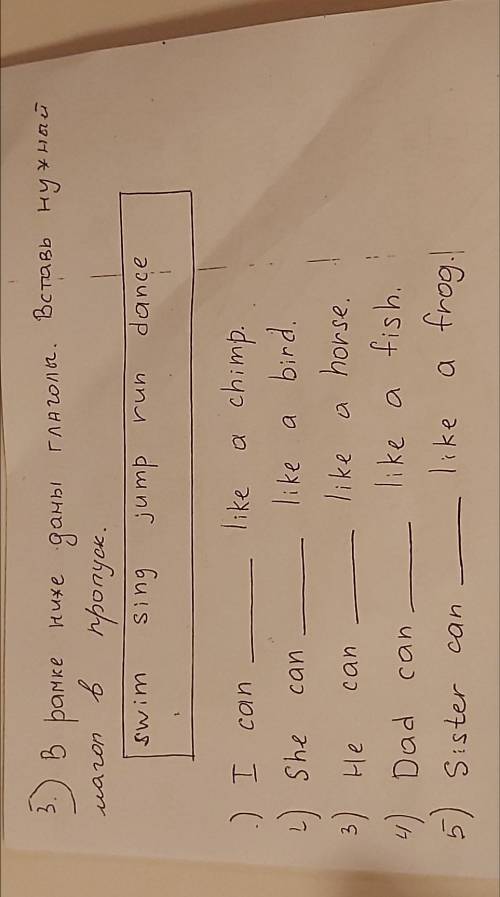 3.) В рамке ниже даны глаголы. Вставь нужный
глагол в пропуск.
swim sing jump run dance
1) I can ____ like a chimp.
2) She can ____ like a bird.
3) He can ____ like a horse.
4) Dad can ____ like a fish.
5) Sister can ____ like a frog.